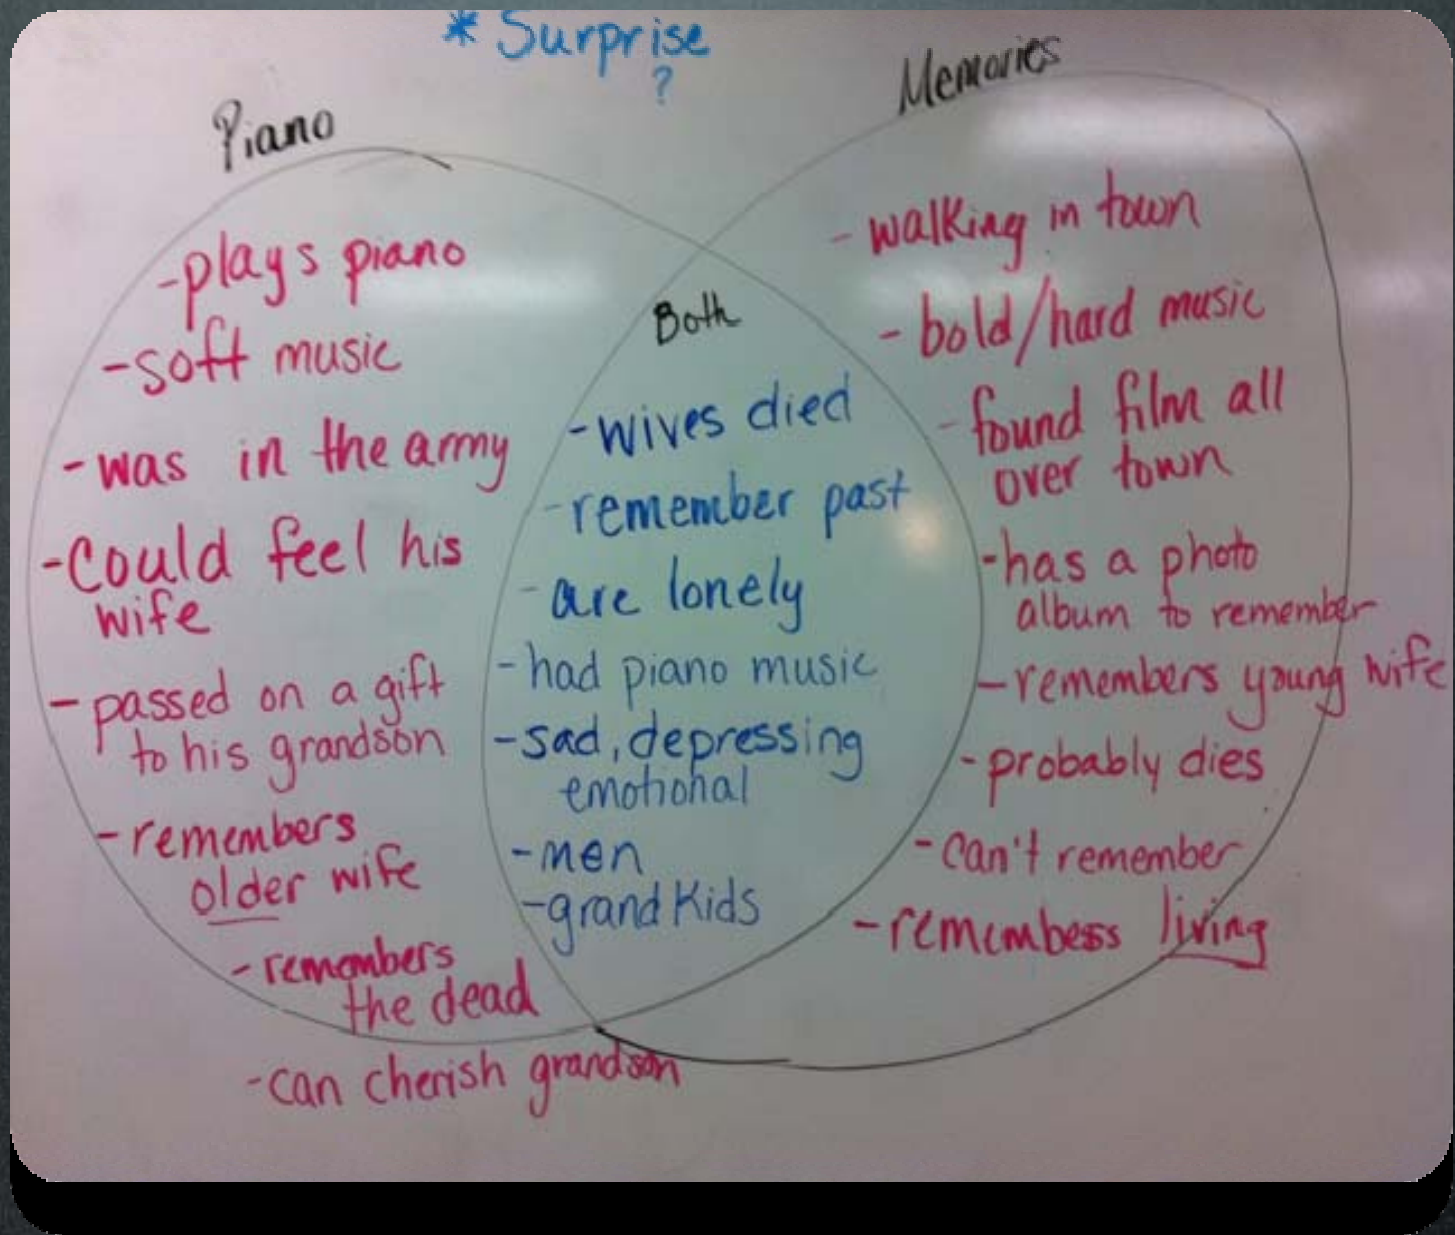 * Surprise
?
Piano
- plays piano
- soft music
- was in the army
- Could feel his
wife
- passed on a gift
to his grandson
- remembers
older wife
- remembers
the dead
- can cherish grandson
Both
- wives died
- remember past
- are lonely
- had piano music
- sad, depressing
emotional
- men
- grand Kids
Memories
- walking in town
- bold/hard music
- found film all
over town
- has a photo
album to remember
- remembers young wife
- probably dies
- can't remember
- remembess living